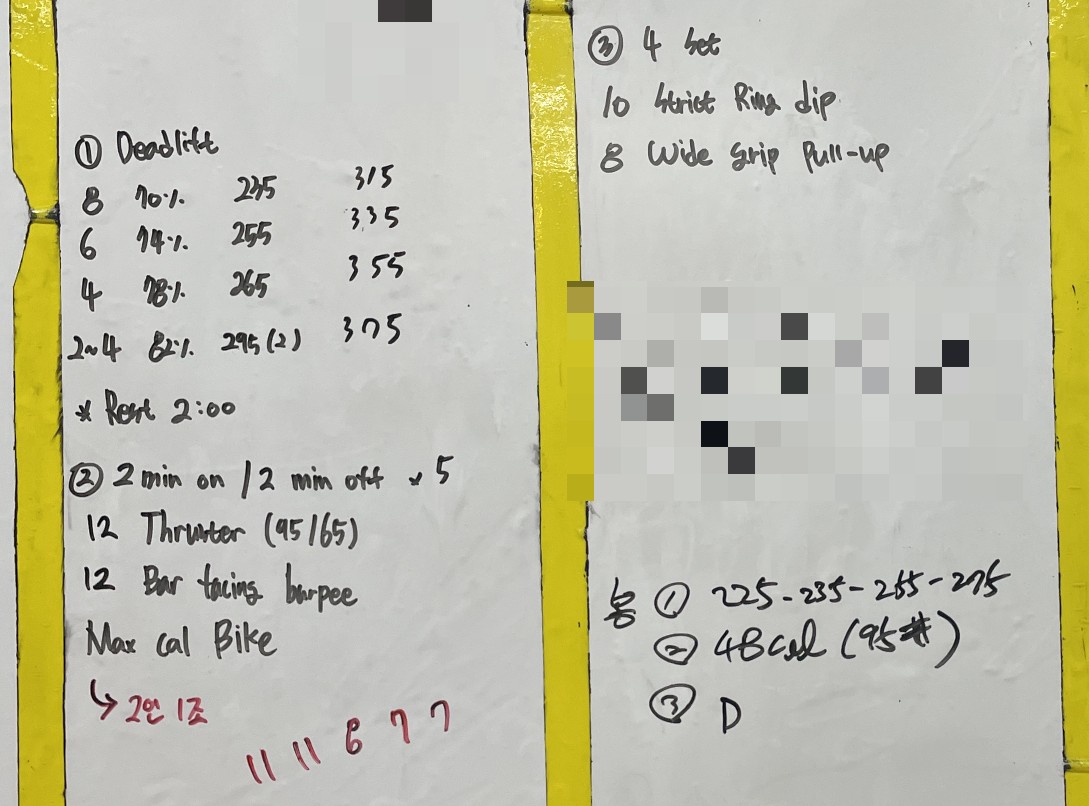 ① Deadlift
8 70% 235 315
6 74% 255 335
4 78% 265 355
2~4 82% 295(2) 375
* Rest 2:00
② 2 min on / 2 min off × 5
12 Thruster (95/65)
12 Bar facing burpee
Max cal Bike
↳ 2인 1조
11 11 6 7 7
③ 4 set
10 strict Ring dip
8 Wide Grip Pull-up
① 225-235-255-275
② 48 cal (95#)
③ D